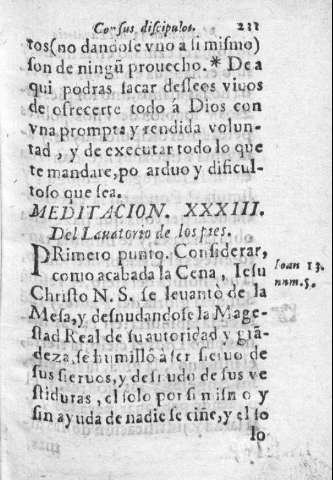 Con sus discipulos. 231
tos(no dandose vno a si mismo)
son de ningũ prouecho.* De a
qui podras sacar desseos viuos
de ofrecerte todo à Dios con
vna prompta y rendida volun-
tad, y de executar todo lo que
te mandare, po arduo y dificul-
toso que sea.
MEDITACION. XXXIII.
Del Lauatorio de los pies.
PRimero punto. Considerar,
como acabada la Cena, Iesu
Christo N. S. se leuantò de la
Mesa, y desnudandose la Mage-
stad Real de su autoridad y grã-
deza, se humillò à ser sieruo de
sus sieruos, y desnudo de sus ve
stiduras, el solo por si mismo y
sin ayuda de nadie se ciñe, y el so
lo
Ioan 13.
num. 5.